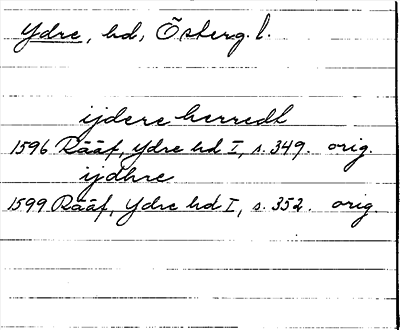 Ydre, hd, Österg. l.
ijdere herredt
1596 Rääf, Ydre hd I, s. 349. orig.
ijdhre
1599 Rääf, Ydre hd I, s. 352. orig